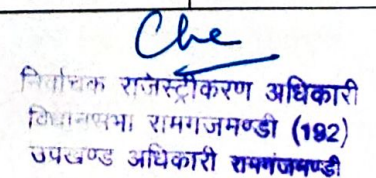 निर्वाचक राजस्ट्रीकरण अधिकारी
विधानसभा रामगजमण्डी (192)
उपखण्ड अधिकारी रामगंजमण्डी